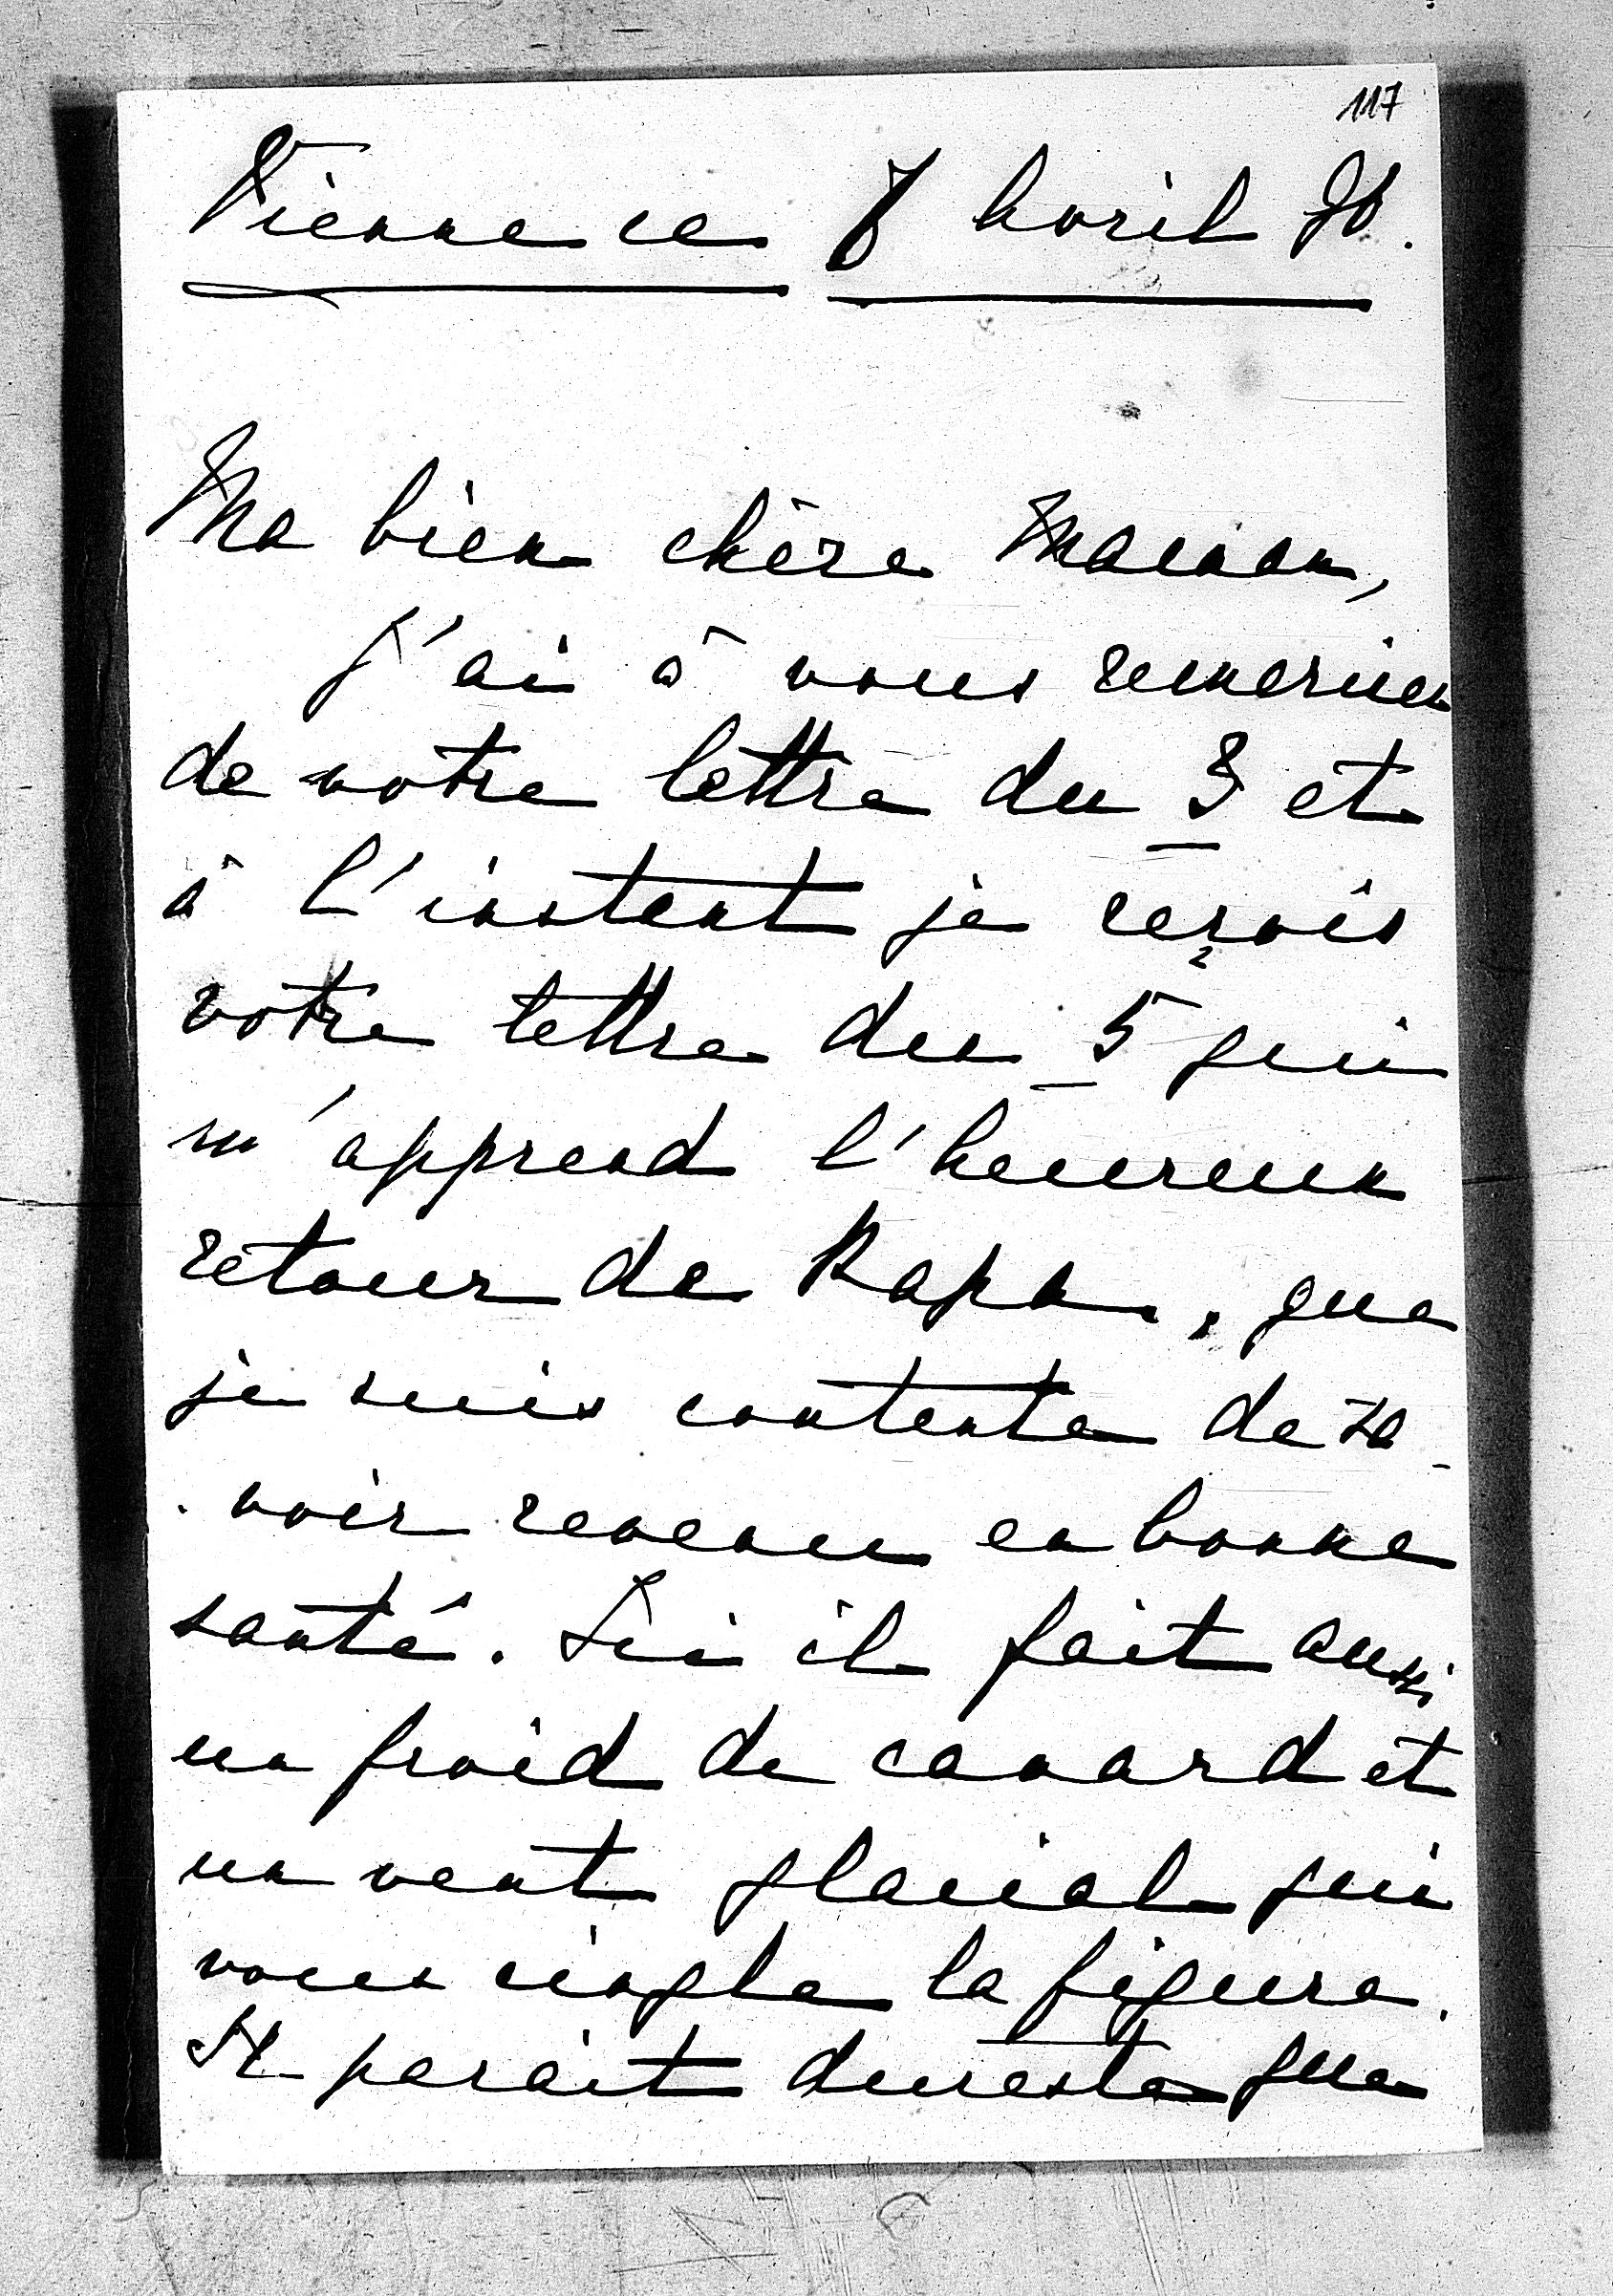 117
Vienne ce 8 Avril 96.
Ma bien chère Maman,
J'ai à vous remercier
de votre lettre du 3 et
à l'instant je reçois
votre lettre du 5 qui
m'apprend l'heureux
retour de Papa, que
je suis contente de sa
voir revenu en bonne
santé. Ici il fait aussi
un froid de canard et
un vent glacial qui
vous cingle la figure.
Il paraît dureste que